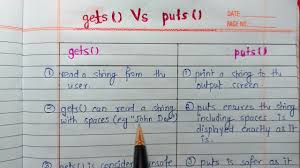 gets() Vs puts()
DATE
PAGE NO.
gets()
puts()
① read a string from the user.
① print a string to the output screen.
② gets() can read a string with spaces (eg "John Doe")
② puts ensures the string including spaces is displayed exactly as it is.
③ gets() is considered unsafe
③ puts is safer as it